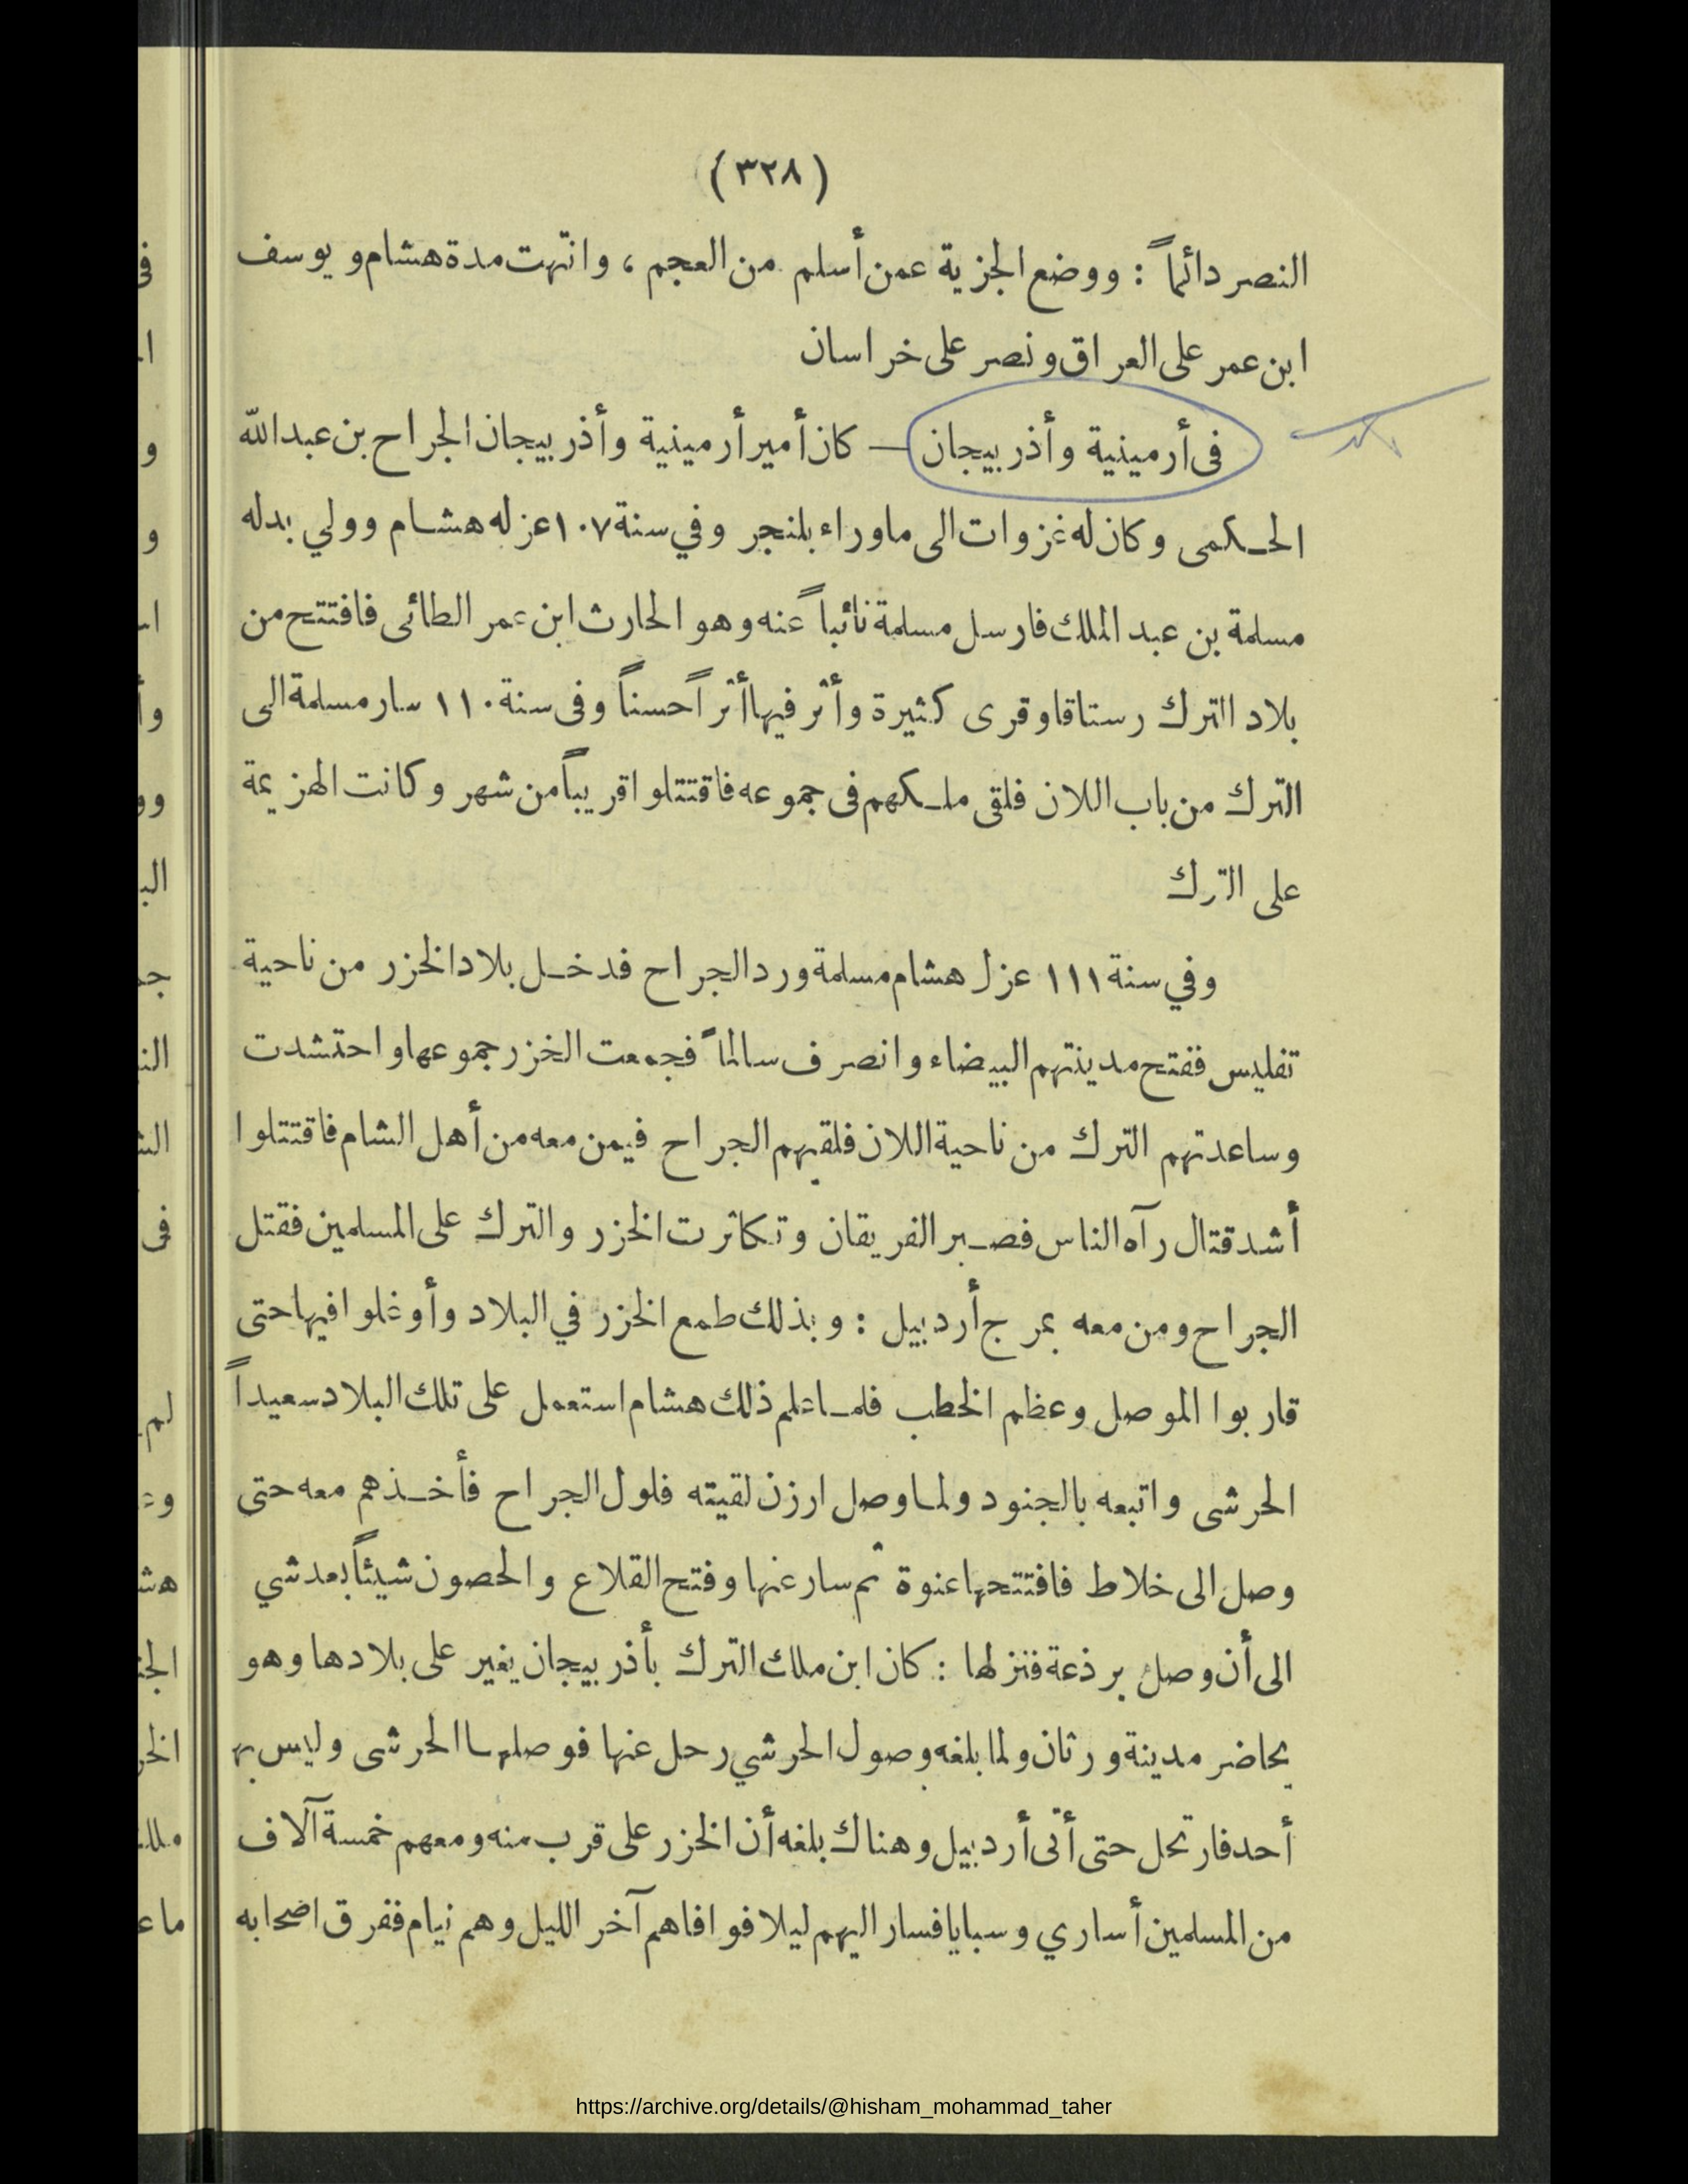 (٣٢٨)
النصر دائماً : ووضع الجزية عمن أسلم من العجم ، وانتهت مدة هشام و يوسف
ابن عمر على العراق ونصر على خراسان
فى أرمينية وأذر بيجان — كان أمير أرمينية وأذر بيجان الجراح بن عبد الله
الحـكمى وكان له غزوات الى ما وراء بلنجر وفي سنة ١٠٧ عزله هشـام وولي بدله
مسلمة بن عبد الملك فارسل مسلمة نائباً عنه وهو الحارث ابن عمر الطائى فافتتح من
بلاد الترك رستاقا وقرى كثيرة وأثر فيها أثراً حسناً وفى سنة ١١٠ سار مسلمة الى
الترك من باب اللان فلقى ملـكهم فى جموعه فاقتتلوا قريباً من شهر وكانت الهزيمة
على الترك
وفي سنة ١١١ عزل هشام مسلمة ورد الجراح فدخـل بلاد الخزر من ناحية
تفليس ففتح مدينتهم البيضاء وانصرف سالماً فجمعت الخزر جموعها واحتشدت
وساعدتهم الترك من ناحية اللان فلقيهم الجراح فيمن معه من أهل الشام فاقتتلوا
أشد قتال رآه الناس فصـبر الفريقان وتكاثرت الخزر والترك على المسلمين فقتل
الجراح ومن معه بمرج أردبيل : وبذلك طمع الخزر في البلاد وأوغلوا فيها حتى
قاربوا الموصل وعظم الخطب فلمـا علم ذلك هشام استعمل على تلك البلاد سعيداً
الحرشى واتبعه بالجنود ولما وصل ارزن لقيته فلول الجراح فأخـذهم معه حتى
وصل الى خلاط فافتتحها عنوة ثم سار عنها وفتح القلاع والحصون شيئاً بعد شي
الى أن وصل برذعة فنزلها : كان ابن ملك الترك بأذر بيجان يغير على بلادها وهو
يحاضر مدينة ورثان ولما بلغه وصول الحرشي رحل عنها فوصلهـا الحرشى وليس بها
أحد فارتحل حتى أتى أردبيل وهناك بلغه أن الخزر على قرب منه ومعهم خمسة آلاف
من المسلمين أساري وسبايا فسار اليهم ليلا فوافاهم آخر الليل وهم نيام ففرق اصحابه
https://archive.org/details/@hisham_mohammad_taher